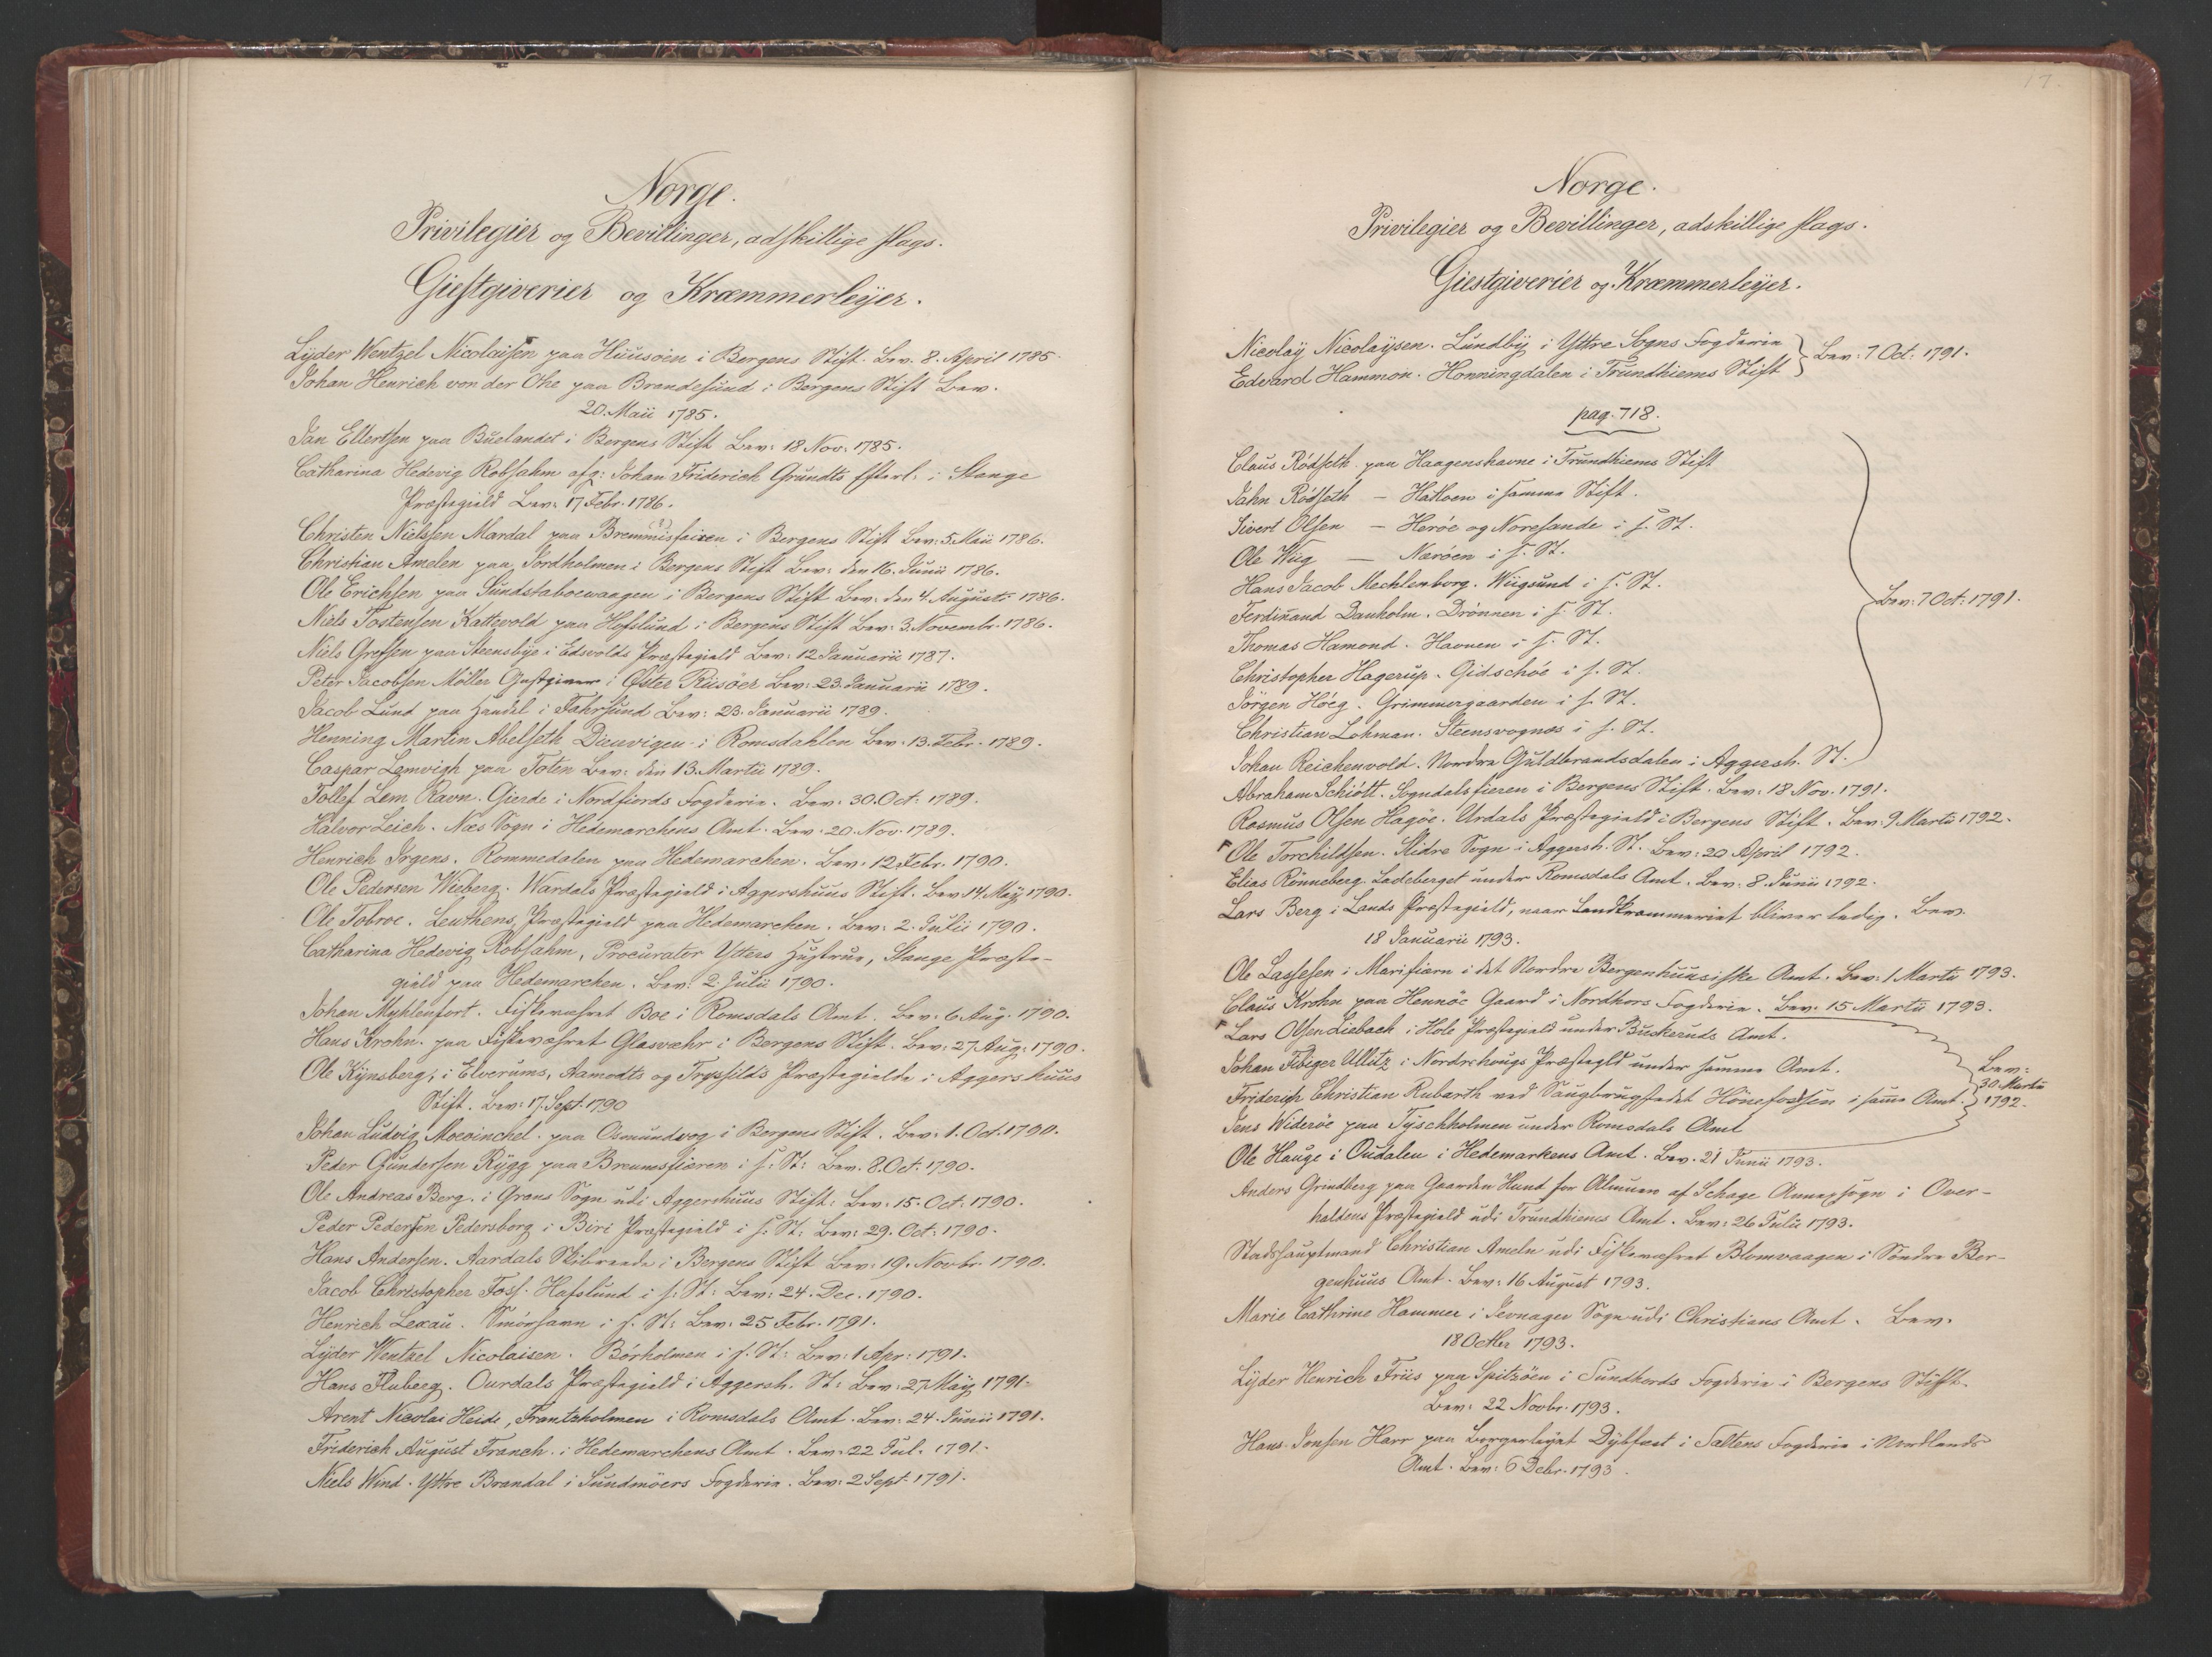 Norge.
Privilegier og Bevillinger, adskillige slags.
Giestgiverier og Kræmmerleyer.
Lyder Wentzel Nicolaisen paa Huusøen i Bergens Stift. Bev. 8. April 1785.
Johan Henrich von der Ohe paa Brandesund i Bergens Stift Bev.
20. Maii 1785.
Jan Ellertsen paa Buelandet i Bergens Stift Bev: 18 Nov: 1785.
Catharina Hedevig Robsahm afg: Johan Friderich Grundts Efterl: i Stange
Præstegield Bev: 17 Febr. 1786.
Christen Nielssen Mardal paa i Bergens Stift Bev: 5. Maii 1786.
Christian Amelen paa Jordholmen i Bergens Stift Bev: den 16. Junii 1786.
Ole Erichsen paa Sundstaboevaagen i Bergens Stift Bev: den 4. August: 1786.
Niels Tostensen Kattevold paa Hofslund i Bergens Stift Bev: 3. Novembr. 1786.
Niels Gressen paa Steensbye i Edsvolds Præstegield Bev: 12 Januarii 1787.
Peter Jacobsen Möller Gastgiver i Øster Riisöer Bev: 23. Januarii 1789.
Jacob Lund paa Handel i Fahrsund Bev: 23. Januarii 1789.
Henning Martin Abelseth Dieuvigen i Romsdahlen Bev: 13. Febr. 1789.
Caspar Lemvigh paa Toten Bev: den 13. Martii 1789.
Tollef Lem Ravn. Gierde i Nordfiords Fogderie. Bev: 30. Oct: 1789.
Halvor Leich. Næs Sogn i Hedemarchens Amt. Bev: 20. Nov. 1789.
Henrich Irgens. Rommedalen paa Hedemarchen. Bev: 12 Febr. 1790.
Ole Pedersen Wieberg. Wardals Præstegield i Aggershuus Stift. Bev 14. Maij 1790.
Ole Tobroe. Leuthens Præstegield paa Hedemarchen. Bev: 2. Julii 1790.
Catharina Hedevig Robsahm, Procurator Ytters Hustrue, Stange Præste-
gield paa Hedemarchen. Bev: 2. Julii 1790.
Johan Myhlenfort. Fiskeværet Boe i Romsdals Amt. Bev: 6 Aug. 1790.
Hans Krohn. paa Fiskeværhret Glasvæhr i Bergens Stift. Bev: 27 Aug: 1790.
Ole Kynsberg, i Elverums, Aamodts og Trysfilds Præstegielde i Aggershuus
Stift. Bev: 17. Sept. 1790
Johan Ludvig Mowinckel. paa Osmundvog i Bergens Stift. Bev: 1. Oct. 1790.
Peder Gundersen Rygg paa Breumsfiæren i s: St: Bev. 8. Oct: 1790.
Ole Andreas Berg. i Grans Sogn udi Aggershuus Stift: Bev: 15. Oct: 1790.
Peder Pedersen Pedersborg i Biri Præstegield i s: St: Bev: 29. Oct: 1790.
Hans Andersen. Aardals Skibreede i Bergens Stift Bev: 19. Novbr. 1790.
Jacob Christopher Foss. Hafslund i s: St: Bev: 24. Dec. 1790.
Henrich Lexau. Smörhavn i s. St: Bev: 25 Febr. 1791.
Lyder Wentzel Nicolaisen. Börholmen i s. St: Bev: 1 Apr: 1791.
Hans Fluberg. Ourdals Præstegield i Aggersh. St: Bev: 27 Maij 1791.
Arent Nicolai Heide, Frantzholmen i Romsdals Amt. Bev: 24. Junii 1791.
Friderich August Franch. i Hedemarchens Amt. Bev: 22 Jul: 1791.
Niels Wind. Yttre Brandal i Sundmöers Fogderie. Bev: 2 Sept. 1791.
17.
Norge.
Privilegier og Bevillinger, adskillige slags.
Giestgiverier og Kræmmerleyer.
Nicolaÿ Nicolaÿsen. Lundbÿ i Yttre Sogns Fogderie
Edvard Hammon. Honningdalen i Trundhiems Stift
Bev: 7 Oct: 1791.
pag. 718.
Claus Rödseth paa Haagenshavne i Trundhiems Stift
Jahn Rödseth — Hatloen i samme Stift.
Sivert Olsen — Heröe og Noresande i s. St.
Ole Wiig — Næröen i s. St.
Hans Jacob Mechlenborg. Wiigsund i s. St.
Ferdinand Dauholm. Drönnen i s. St.
Thomas Hamond. Havnen i s. St.
Christopher Hagerup. Gidschöe i s. St.
Jörgen Höeg. Grimmergaarden i s. St.
Christian Lohman. Steensvognæs i s. St.
Johan Reichenvold. Nordre Guldbrandsdalen i Aggersh. St.
Bev: 7 Oct: 1791.
Abraham Schiött. Sogndalsfieren i Bergens Stift. Bev: 18 Nov. 1791.
Rasmus Olsen Hagöe. Urdals Præstegield i Bergens Stift. Bev: 9 Martii 1792.
Ole Torchildsen. Slidre Sogn i Aggersh. St. Bev: 20 April 1792.
Elias Rönneberg. Ladeberget under Romsdals Amt. Bev: 8. Junii 1792.
Lars Berg i Lands Præstegield, naar Landkræmmeriet bliver ledig. Bev.
18 Januarii 1793.
Ole Lassesen i Marifiærn i det Nordre Bergenhuusiske Amt. Bev: 1 Martii 1793.
Claus Krohn paa Hennöe Gaard i Nordhors Fogderie. Bev: 15 Martii 1793.
Lars Olsen Liebach i Hole Præstegield under Buskeruds Amt.
Johan Fibiger Ullitz i Nordrehougs Præstegld under samme Amt.
Friderich Christian Rubarth ved Saugbrugstedet Hönefodsen i samme Amt.
Jens Wideröe paa Tyschholmen under Romsdals Amt
Bev:
30 Martii
1792.
Ole Hauge i Oudalen i Hedemarkens Amt. Bev. 21 Junii 1793.
Anders Grindberg paa Gaarden Hund for Almuen af Schage Annexsogn i Over-
haldens Præstegield udi Trundhiems Amt. Bev: 26 Julii 1793.
Stadshauptmand Christian Ameln udi Fiskeværhret Blomvaagen i Söndre Ber-
genhuus Amt. Bev: 16 August 1793.
Marie Cathrine Hammer i Jevnager Sogn udi Christians Amt. Bev.
18 Octbr 1793.
Lyder Henrich Friis paa Spitzöen i Sundhords Fogderie i Bergens Stift.
Bev: 22 Novbr. 1793.
Hans Jonsen Harr paa Borgerleyet Dybfæst i Saltens Fogderie i Nordlands
Amt. Bev: 6 Decbr. 1793.